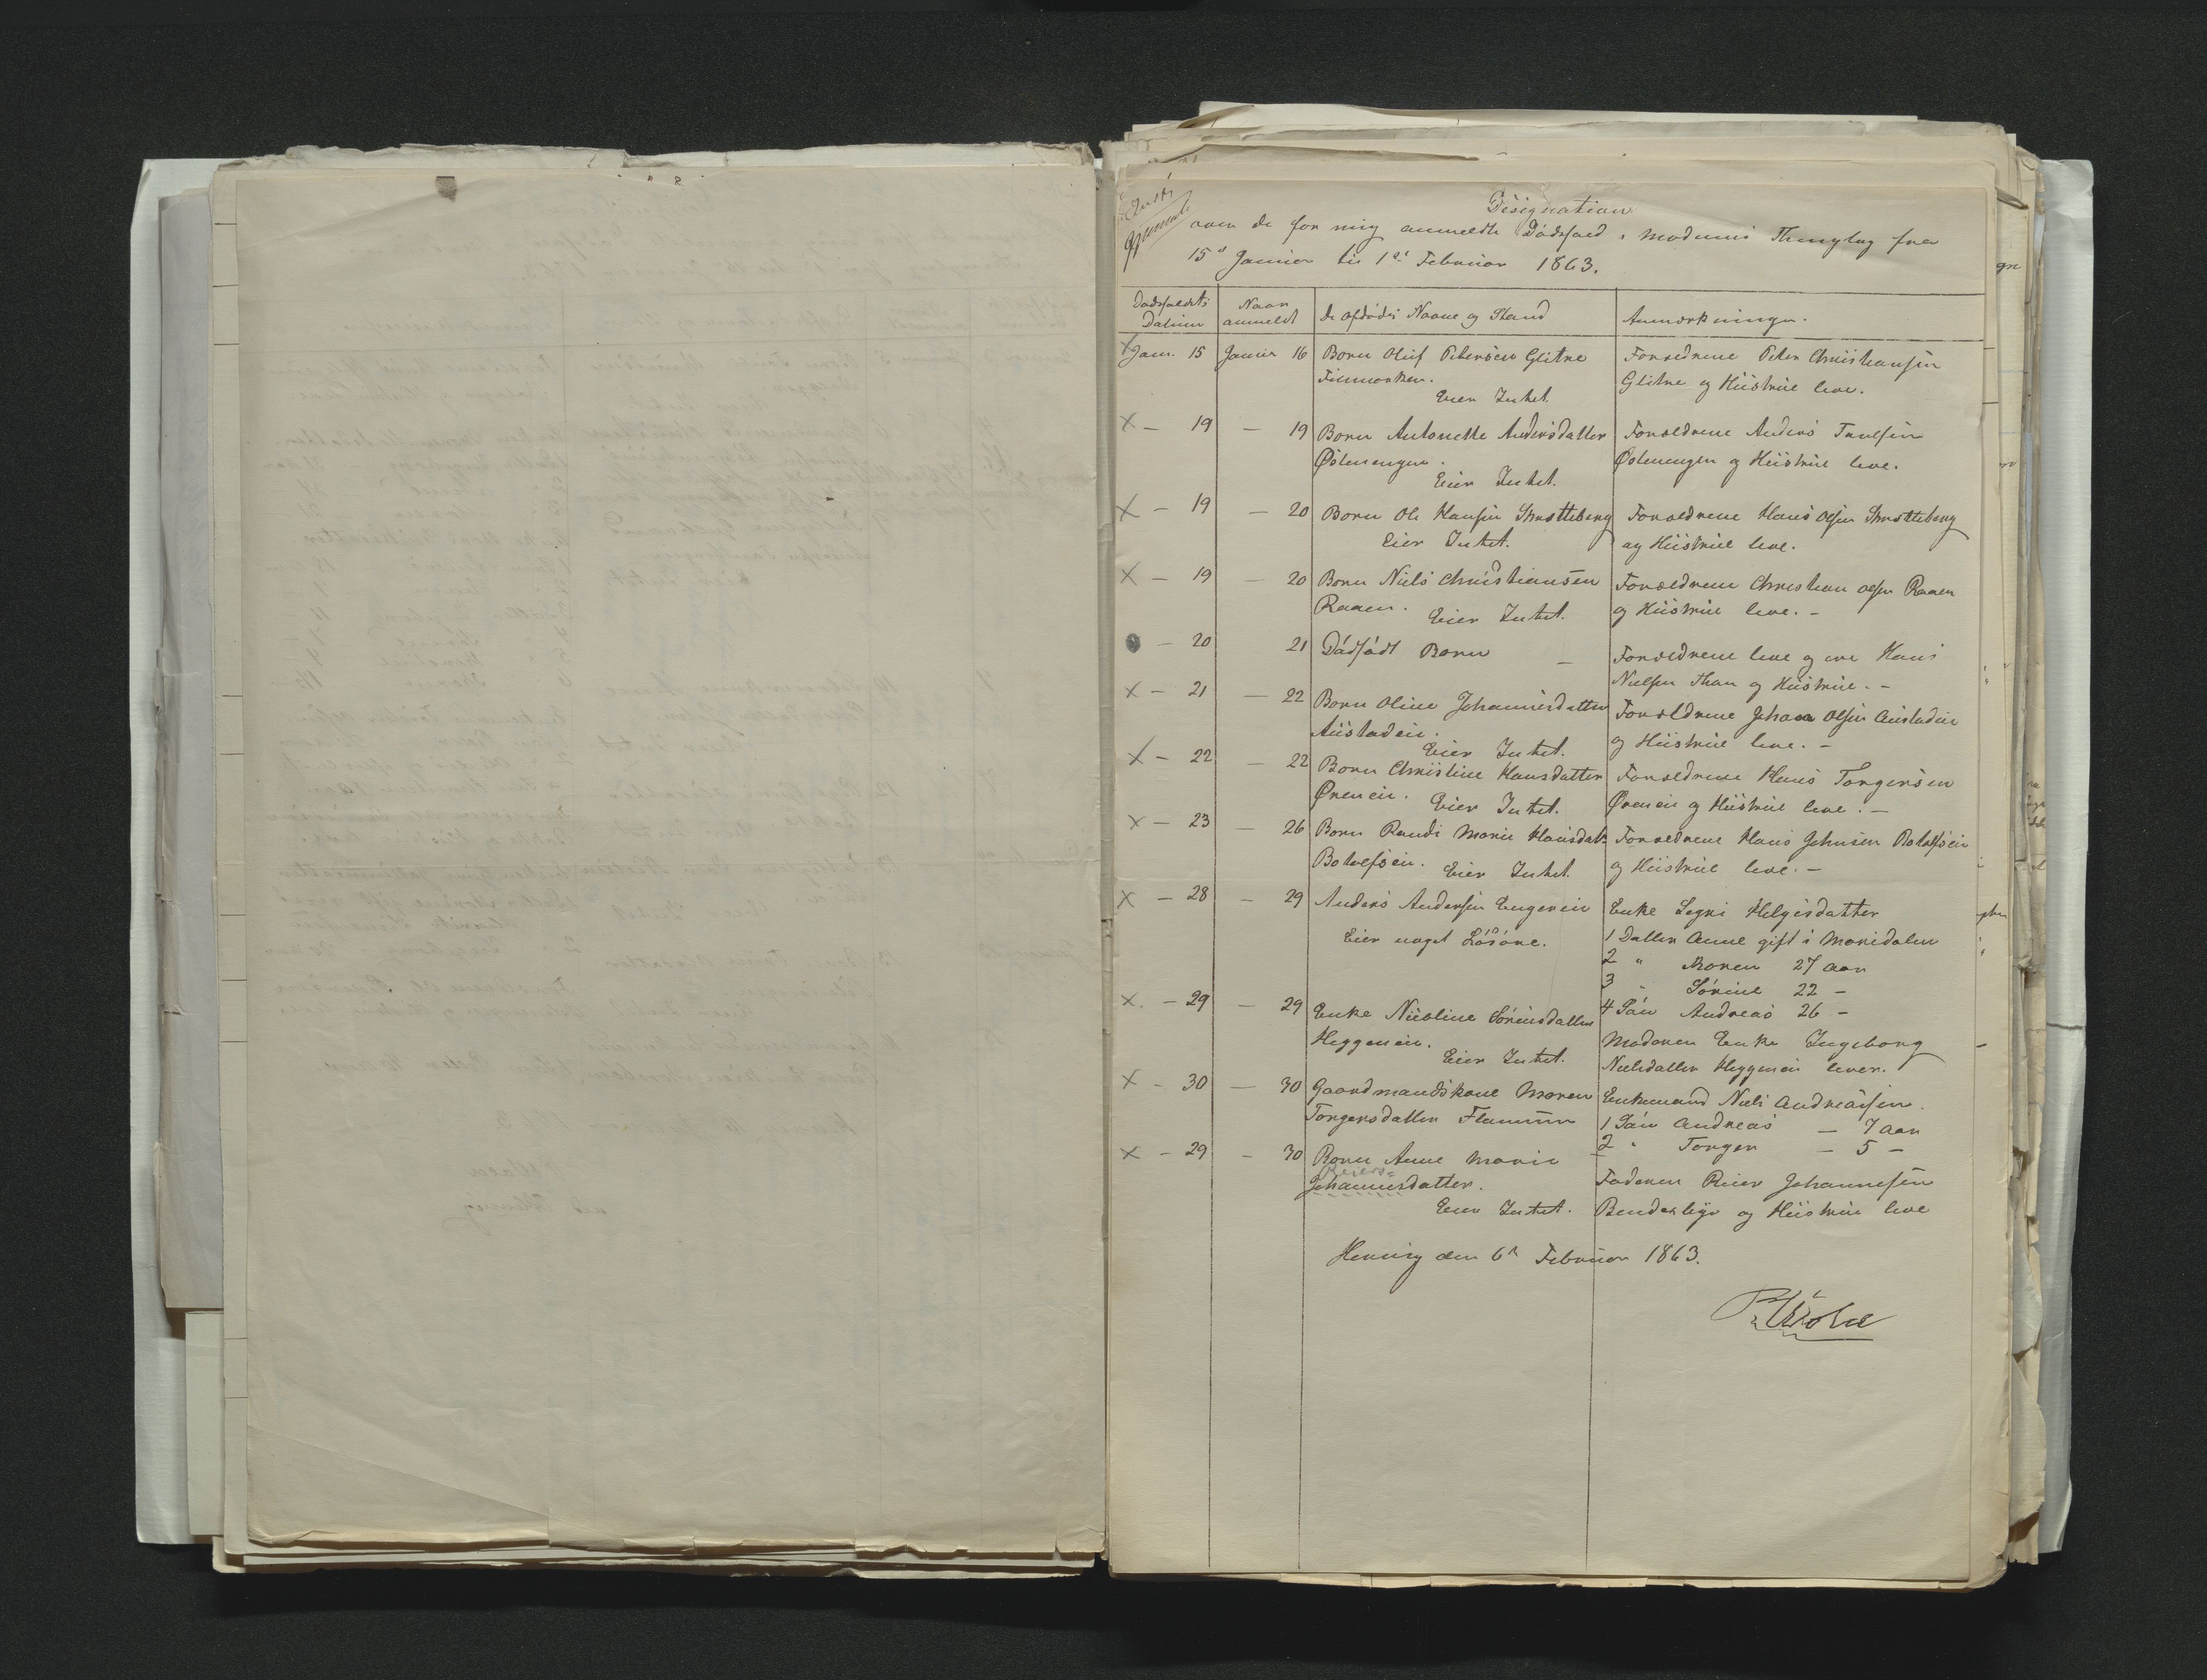 Designation
over de for mig anmeldte Dødsfald i Modums Thinglag fra
15de Januar til 1ste Februar 1863.
Dødsfaldets Datum
Naar anmeldt
de afdødes Navne og Stand
Anmærkninger.
Janr. 15 Januar 16 Barn Oluf Petersen Glitre
Finmarken.
Eier Intet.
Forældrene Peter Christiansen
Glitre og Hüstrüe leve.
— 19 — 19 Barn Antonette Andersdatter
Østmengen.
Eier Intet.
Forældrene Anders Truelsen
Østmengen og Hüstrüe leve.
— 19 — 20 Barn Ole Hansen
Eier Intet.
Forældrene Hans Olsen
og Hüstrüe leve.
— 19 — 20 Barn Niels Christiansen
Raaen. Eier Intet.
Forældrene Christian Olsen Raaen
og Hüstrüe leve. —
— 20 21 Dødfødt Barn —
Forældrene leve og ere Hans
Nielsen Thon og Hüstrüe. —
— 21 — 22 Barn Oline Johannesdatter
Aüstadeie.
Eier Intet.
Forældrene Johan Olsen Aüstadeie
og Hüstrüe leve. —
— 22 — 22 Barn Christine Hansdatter
Øreneie. Eier Intet.
Forældrene Hans Torgersen
Øreneie og Hüstrüe leve. —
— 23 — 26 Barn Randi Marie Hansdatr
Botolfseie. Eier Intet.
Forældrene Hans Johnsen Botolfseie
og Hüstrüe leve. —
— 28 — 29 Anders Andersen Engereie
Eier noget Løsøre.
Enke Segri Helgesdatter
1 Datter Anne gift i Maridalen
2 " Maren 27 Aar
3 " Sørine 22 —
4 Søn Andreas 26 —
— 29 — 29 Enke Nicoline Sørensdatter
Heggeneie.
Eier Intet.
Moderen Enke Ingeborg
Nielsdatter Heggeneie lever.
— 30 — 30 Gaardmandskone Maren
Torgersdatter
Enkemand Niels Andreasen.
1 Søn Andreas — 7 Aar
2 " Torger — 5 —
— 29 — 30 Barn Anne Marie
Reiers-
Johannesdatter.
Eier Intet.
Faderen Reier Johannesen
og Hüstrüe leve
den 6te Februar 1863.